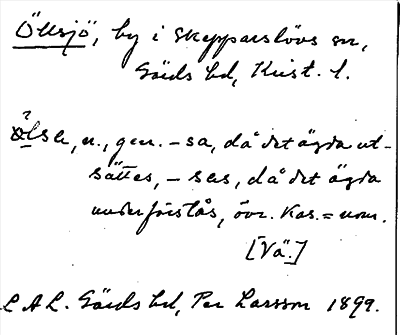 Öllsjö, by i Skepparslövs sn,
Gärds hd, Krist. l.
n., gen. -sa, då det ägda ut-
sättes, -sas, då det ägda
underförstås, övr. kas. = nom.
[Vä.]
L A L. Gärds hd, Per Larsson 1899.